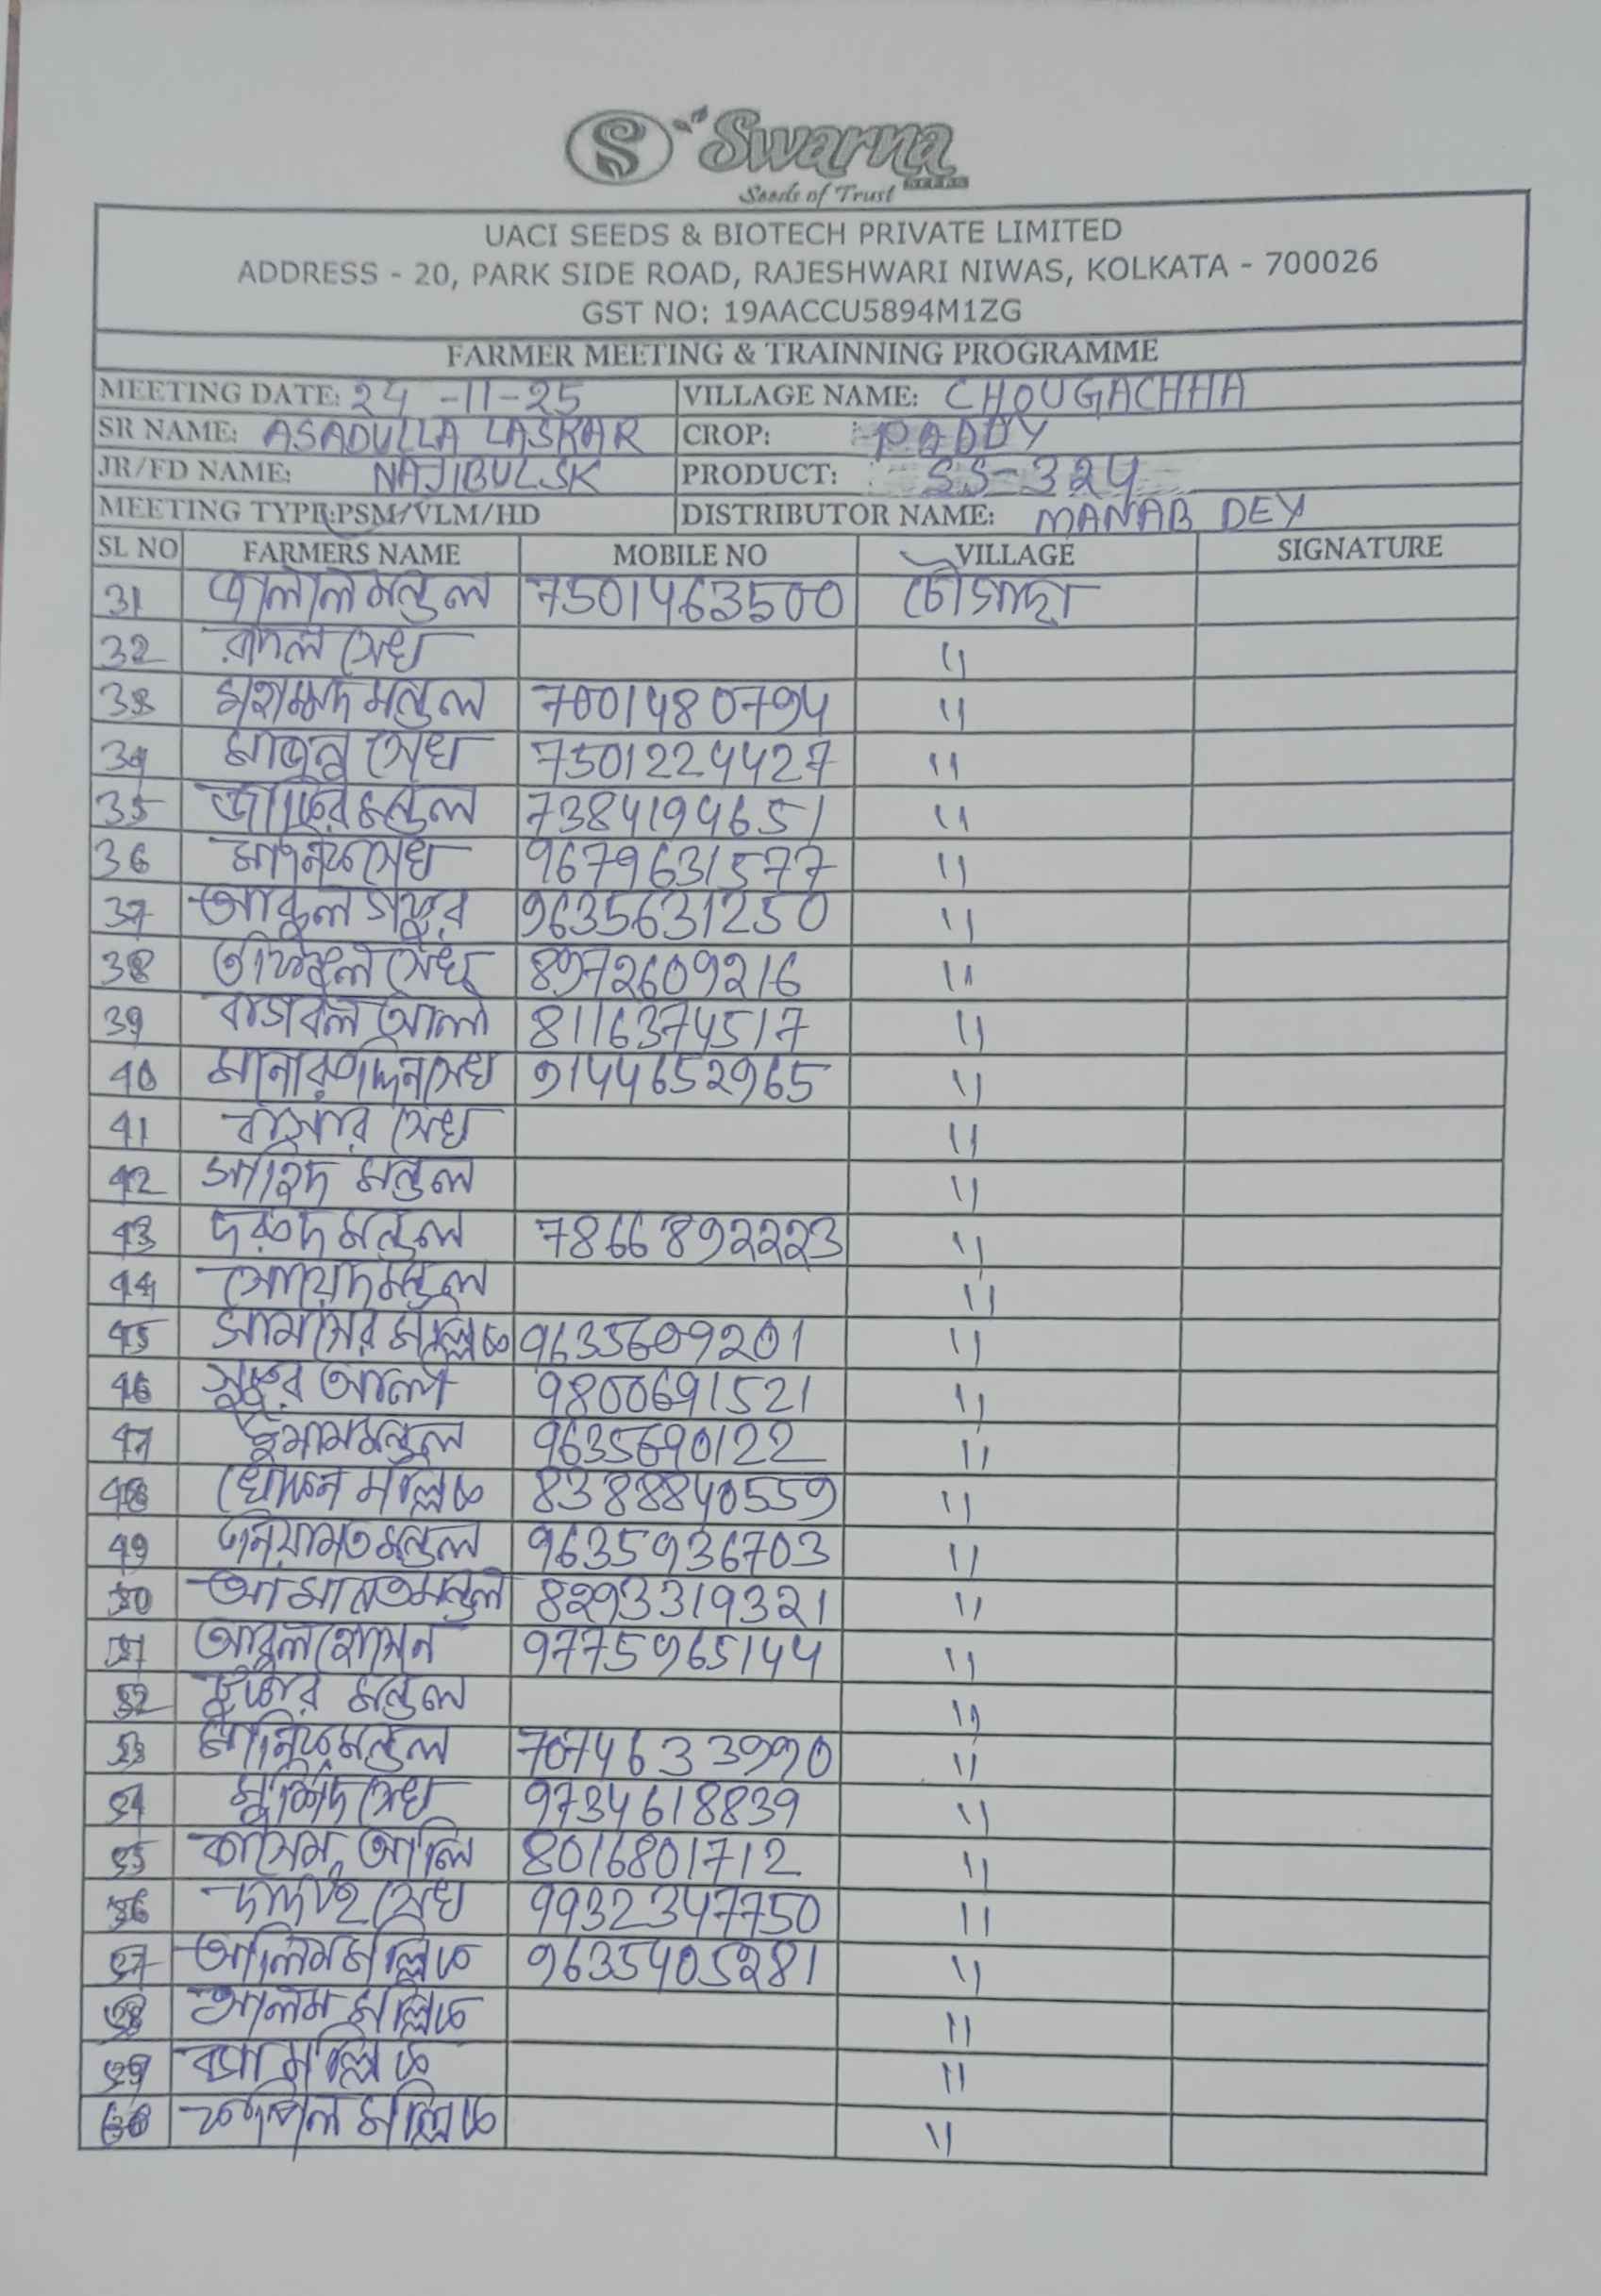 S Swarna
SEEDS
Seeds of Trust
UACI SEEDS & BIOTECH PRIVATE LIMITED
ADDRESS - 20, PARK SIDE ROAD, RAJESHWARI NIWAS, KOLKATA - 700026
GST NO: 19AACCU5894M1ZG
FARMER MEETING & TRAINNING PROGRAMME
MEETING DATE: 24-11-25 VILLAGE NAME: CHOUGACHHA
SR NAME: ASADULLA LASKAR CROP: PADDY
JR/FD NAME: NAJIBUL SK PRODUCT: SS-324
MEETING TYPR:PSM/VLM/HD DISTRIBUTOR NAME: MANAB DEY
SL NO FARMERS NAME MOBILE NO VILLAGE SIGNATURE
31 জালাল মন্ডল 7501463500 চৌগাছা
32 বাদল সেখ "
33 মহাম্মদ মন্ডল 7001480794 "
34 মাজুল সেখ 7501224427 "
35 জাকির মন্ডল 7384194651 "
36 মানিক সেখ 9679631577 "
37 আব্দুল গফুর 9635631250 "
38 সেখ 8972609216 "
39 আলী 8116374517 "
40 সেখ 9144652965 "
41 বাসার সেখ "
42 সাহিদ মন্ডল "
43 দরুদ মন্ডল 7866892223 "
44 সোয়েদ মন্ডল "
45 সামসের মল্লিক 9635609201 "
46 সুকুর আলী 9800691521 "
47 ইমাম মন্ডল 9635690122 "
48 খোকন মল্লিক 8388840559 "
49 নিয়ামত মন্ডল 9635936703 "
50 আমানত মন্ডল 8293319321 "
51 আবুল হোসেন 9775965144 "
52 মন্ডল "
53 মানিক মন্ডল 7074633990 "
54 মুর্শিদ সেখ 9734618839 "
55 কাসেম আলি 8016801712 "
56 সেখ 9932347750 "
57 আলিম মল্লিক 9635405281 "
58 আলম মল্লিক "
59 মল্লিক "
60 মল্লিক "